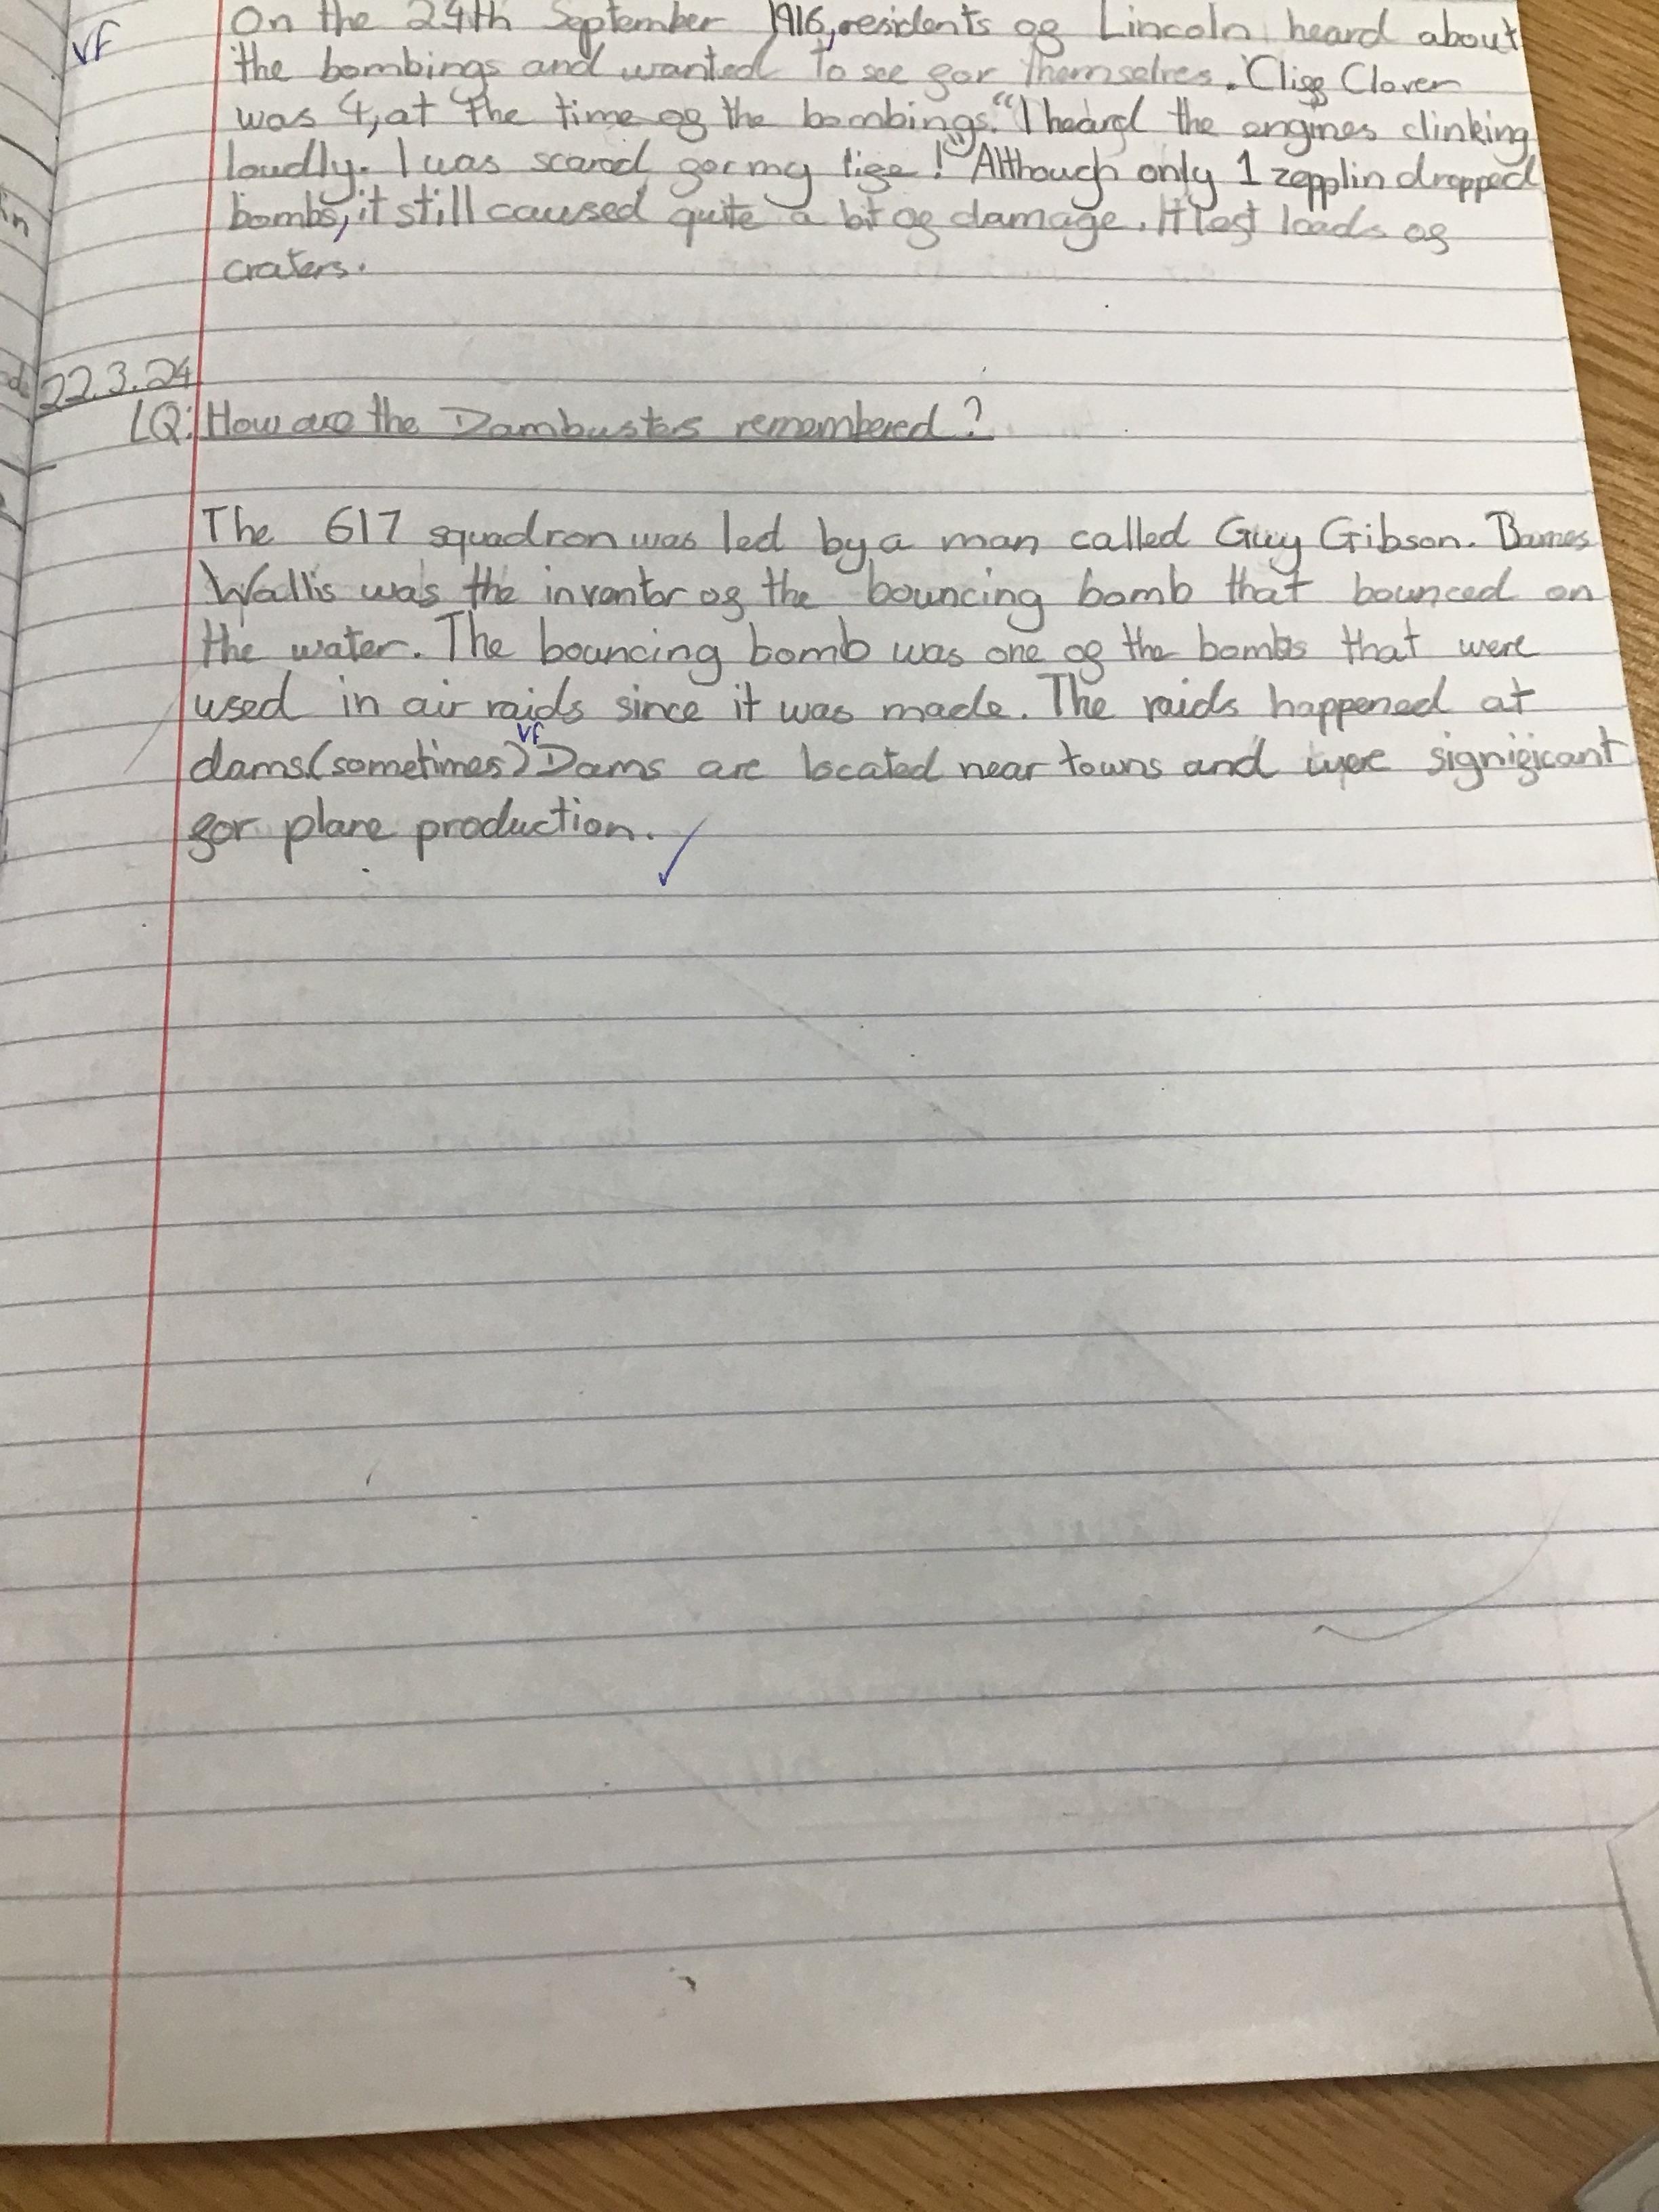 VF
On the 24th September 1916, residents of Lincoln heard about
the bombings and wanted to see for themselves. Cliff Clover
was 4, at the time of the bombings. "I heard the engines clinking
loudly. I was scared for my life!" Although only 1 zepplin dropped
bombs, it still caused quite a bit of damage. It left loads of
craters.
22.3.24
LQ: How are the Dambusters remembered?
The 617 squadron was led by a man called Guy Gibson. Barnes
Wallis was the inventor of the bouncing bomb that bounced on
the water. The bouncing bomb was one of the bombs that were
used in air raids since it was made. The raids happened at
VF
dams.(sometimes) Dams are located near towns and were significant
for plane production.